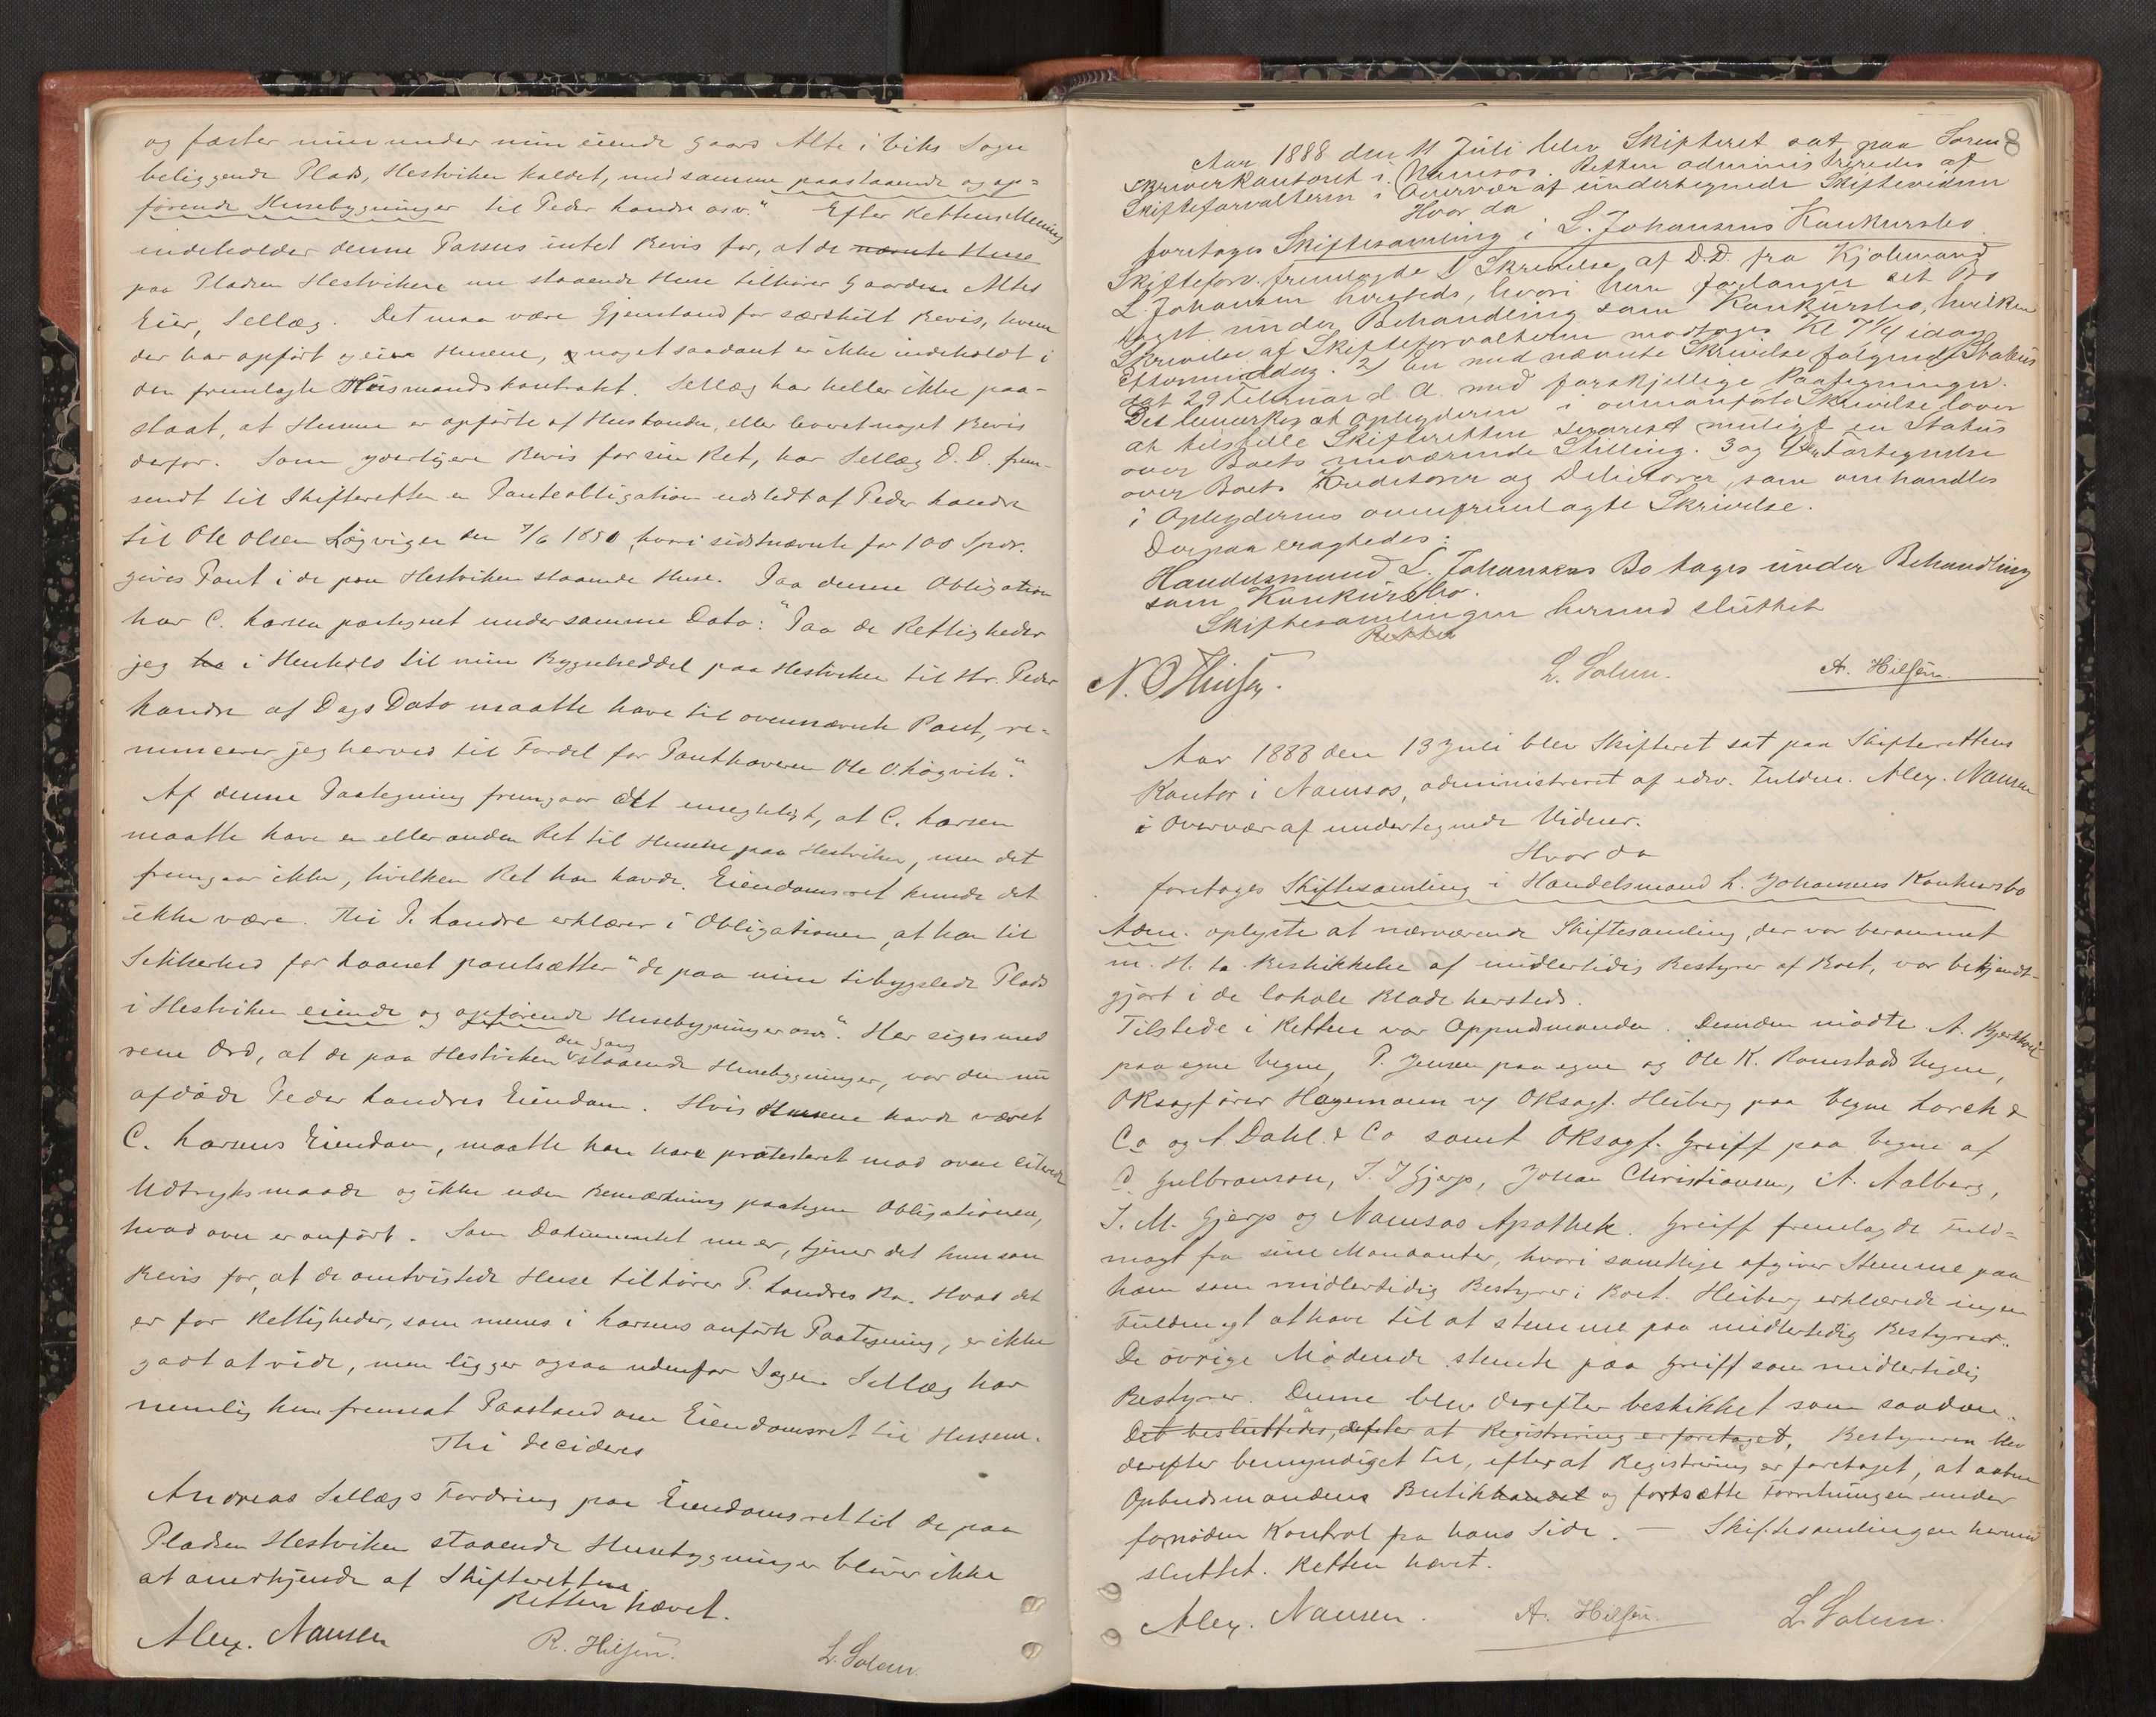 og fæster min under min eiende Gaard Alte i Viks Sogn
beliggende Plads, Hestviken kaldet, med samme paastaaende og op=
førende Husebygninger til Peder Landre osv." Efter Rettens Mening
indeholder denne Passus intet Bevis for, at de nævnte Huse
paa Pladsen Hestviken nu staaende Huse tilhører Gaarden Altes
Eier, Sellæg. Det maa være Gjenstand for særskilt Bevis, hvem
der har opført og eier Husene, og noget saadant er ikke indeholdt i
den fremlagte Husmandskontrakt. Sellæg har heller ikke paa-
staat, at Husene er opførte af Husbonden, eller leveret noget Bevis
derfor. Som yderligere Bevis for sin Ret, har Sellæg D.D. frem-
sendt til Skifteretten en Panteobligation udstedt af Peder Landre
til Ole Olsen Løgvigen den 7/6 1850, hvori sidstnævnte for 100 Spdr.
gives Pant i de paa Hestviken staaende Huse. Paa denne Obligation
har C. Larsen paategnet under samme Dato: "Paa de Rettigheder
jeg ha i Henhold til min Bygselseddel paa Hestviken til Hr. Peder
Landre af Dags Dato maatte have til ovennævnte Pant, re-
nuncerer jeg herved til Fordel for Panthaveren Ole O. Løgvik".
Af denne Paategning fremgaar det unegteligt, at C. Larsen
maatte have en eller anden Ret til Husene paa Hestviken, men det
fremgaar ikke, hvilken Ret han havde. Eiendomsret kunde det
ikke være. Thi P. Landre erklærer i Obligationen, at han til
Sikkerhed for Laanet pantsætter "de paa min tilbygslede Plads
i Hestviken eiende og opførende Husebygninger osv." Her siges med
rene Ord, at de paa Hestviken den Gang staaende Husebygninger, var den nu
afdøde Peder Landres Eiendom. Hvis Husene havde været
C. Larsens Eiendom, maatte han have protesteret mod oven citerede
Udtryksmaade og ikke uden Bemærkning paategne Obligationen,
hvad oven er anført. Som Dokumentet nu er, tjener det kun som
Bevis for, at de omtvistede Huse tilhører P. Landres Bo. Hvad det
er for Rettigheder, som menes i Larsens anførte Paategning, er ikke
godt at vide, men ligger ogsaa udenfor Sagen. Sellæg har
nemlig kun fremsat Paastand om Eiendomsret til Husene.
Thi decideres
Andreas Sellægs Fordring paa Eiendomsret til de paa
Pladsen Hestviken staaende Husebygninger bliver ikke
at anerkjende af Skifteretten.
Retten hævet.
Alex. Nansen R. Hilsen. L. Solem.
8
Aar 1888 den 11 Juli blev Skifteret sat paa Soren
skriverkontoret i Namsos. Retten administreredes af
Skifteforvalteren i Overvær af undertegnede Skiftevidner
Hvor da
foretoges Skiftesamling i L. Johansens Konkursbo.
Skifteforv. fremlagde 1) Skrivelse af D.D. fra Kjøbmand
L. Johansen hersteds, hvori han forlanger sit Bo
taget under Behandling som Konkursbo, hvilken
Skrivelse af Skifteforvalteren modtoges Kl 7 1/4 idag
Eftermiddag. 2) En med nævnte Skrivelse følgende Status
dat 29 Februar d A. med forskjellige Paategninger.
Det bemerkes at Opbyderen i ovenanførte Skrivelse lover
at tilstille Skifteretten snarest muligt en Status
over Boets nuværende Stilling. 3 og 4 Fortegnelse
over Boets Kreditorer og Debitorer, som omhandles
i Opbyderens ovenfremlagte Skrivelse.
Derpaa eragtedes:
Handelsmand L. Johansens Bo tages under Behandling
som Konkursbo.
Skiftesamlingen hermed sluttet
Retten
L. Solem. A. Hilsen.
Aar 1888 den 13 Juli blev Skifteret sat paa Skifterettens
Kontor i Namsos, administreret af edsv. Fuldm. Alex. Nansen
i Overvær af undertegnede Vidner.
Hvor da
foretoges Skiftesamling i Handelsmand L. Johansens Konkursbo
Adm. oplyste at nærværende Skiftesamling, der var berammet
m. H. ta Beskikkelse af midlertidig Bestyrer af Boet, var bekjendt-
gjort i de lokale Blade hersteds.
Tilstede i Retten var Opbudsmanden. Desuden mødte A.
paa egne Vegne, P. Jensen paa egne og Ole K. Romstads Vegne,
OKsagfører Hagemann vg OKsagf. Heiberg paa Vegne Lorck &
Co og A. Dahl & Co samt OKsagf. Greiff paa Vegne af
D. Gulbranson, J. J Gjerp, Johan Christiansen, A. Aalberg,
J. M. Gjerp og Namsos Apothek. Greiff fremlagde Fuld=
magt fra sine Mandanter, hvori samtlige afgiver Stemme paa
ham som midlertidig Bestyrer i Boet. Heiberg erklærede ingen
Fuldmagt at have til at stemme paa midlertidig Bestyrer.
De øvrige Mødende stemte paa Greiff som midlertidig
Bestyrer. Denne blev derefter beskikket som saadan.
Det besluttedes, efter at Registrering er foretaget, Bestyreren blev
derefter bemyndiget til, efter at Registrering er foretaget, at aabne
Opbudsmandens Butikhandel og fortsætte Forretningen under
fornøden Kontrol fra hans Side. — Skiftesamlingen hermed
sluttet. Retten hævet.
Alex. Nansen. A. Hilsen. L. Solem.